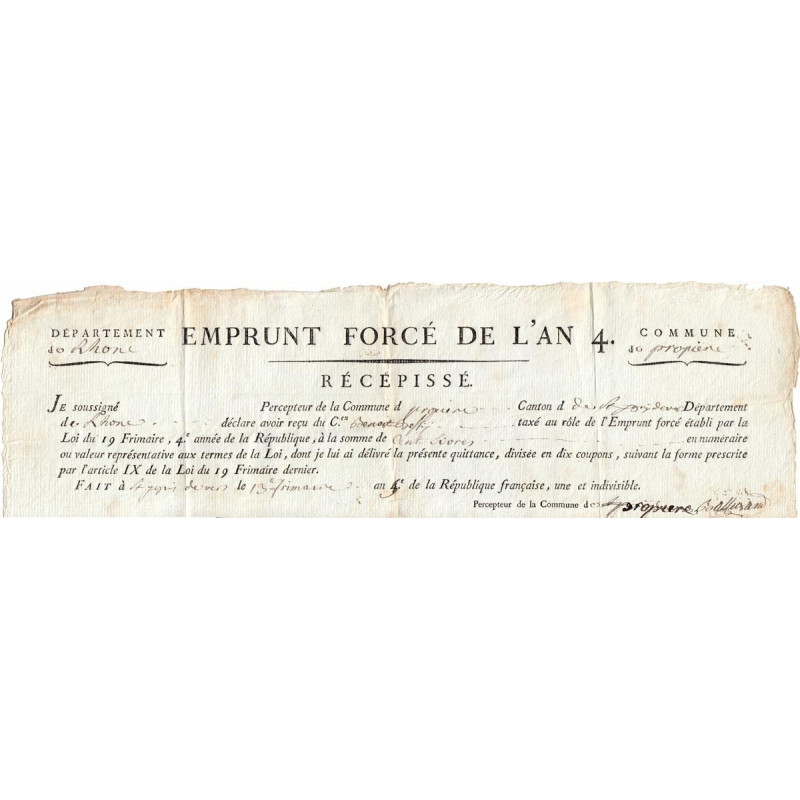 DÉPARTEMENT
EMPRUNT FORCÉ DE L'AN 4.
COMMUNE
do Rhone
do propiere
RÉCÉPISSÉ.
JE soussigné Percepteur de la Commune d propiere Canton d Département
de Rhone déclare avoir reçu du C.en Benoit taxé au rôle de l'Emprunt forcé établi par la
Loi du 19 Frimaire, 4.e année de la République, à la somme de Cent Livres en numéraire
ou valeur representative aux termes de la Loi, dont je lui ai délivré la présente quittance, divisée en dix coupons, suivant la forme prescrite
par l'article IX de la Loi du 19 Frimaire dernier.
FAIT à le 13e frimaire an 4.e de la République française, une et indivisible.
Percepteur de la Commune de propiere